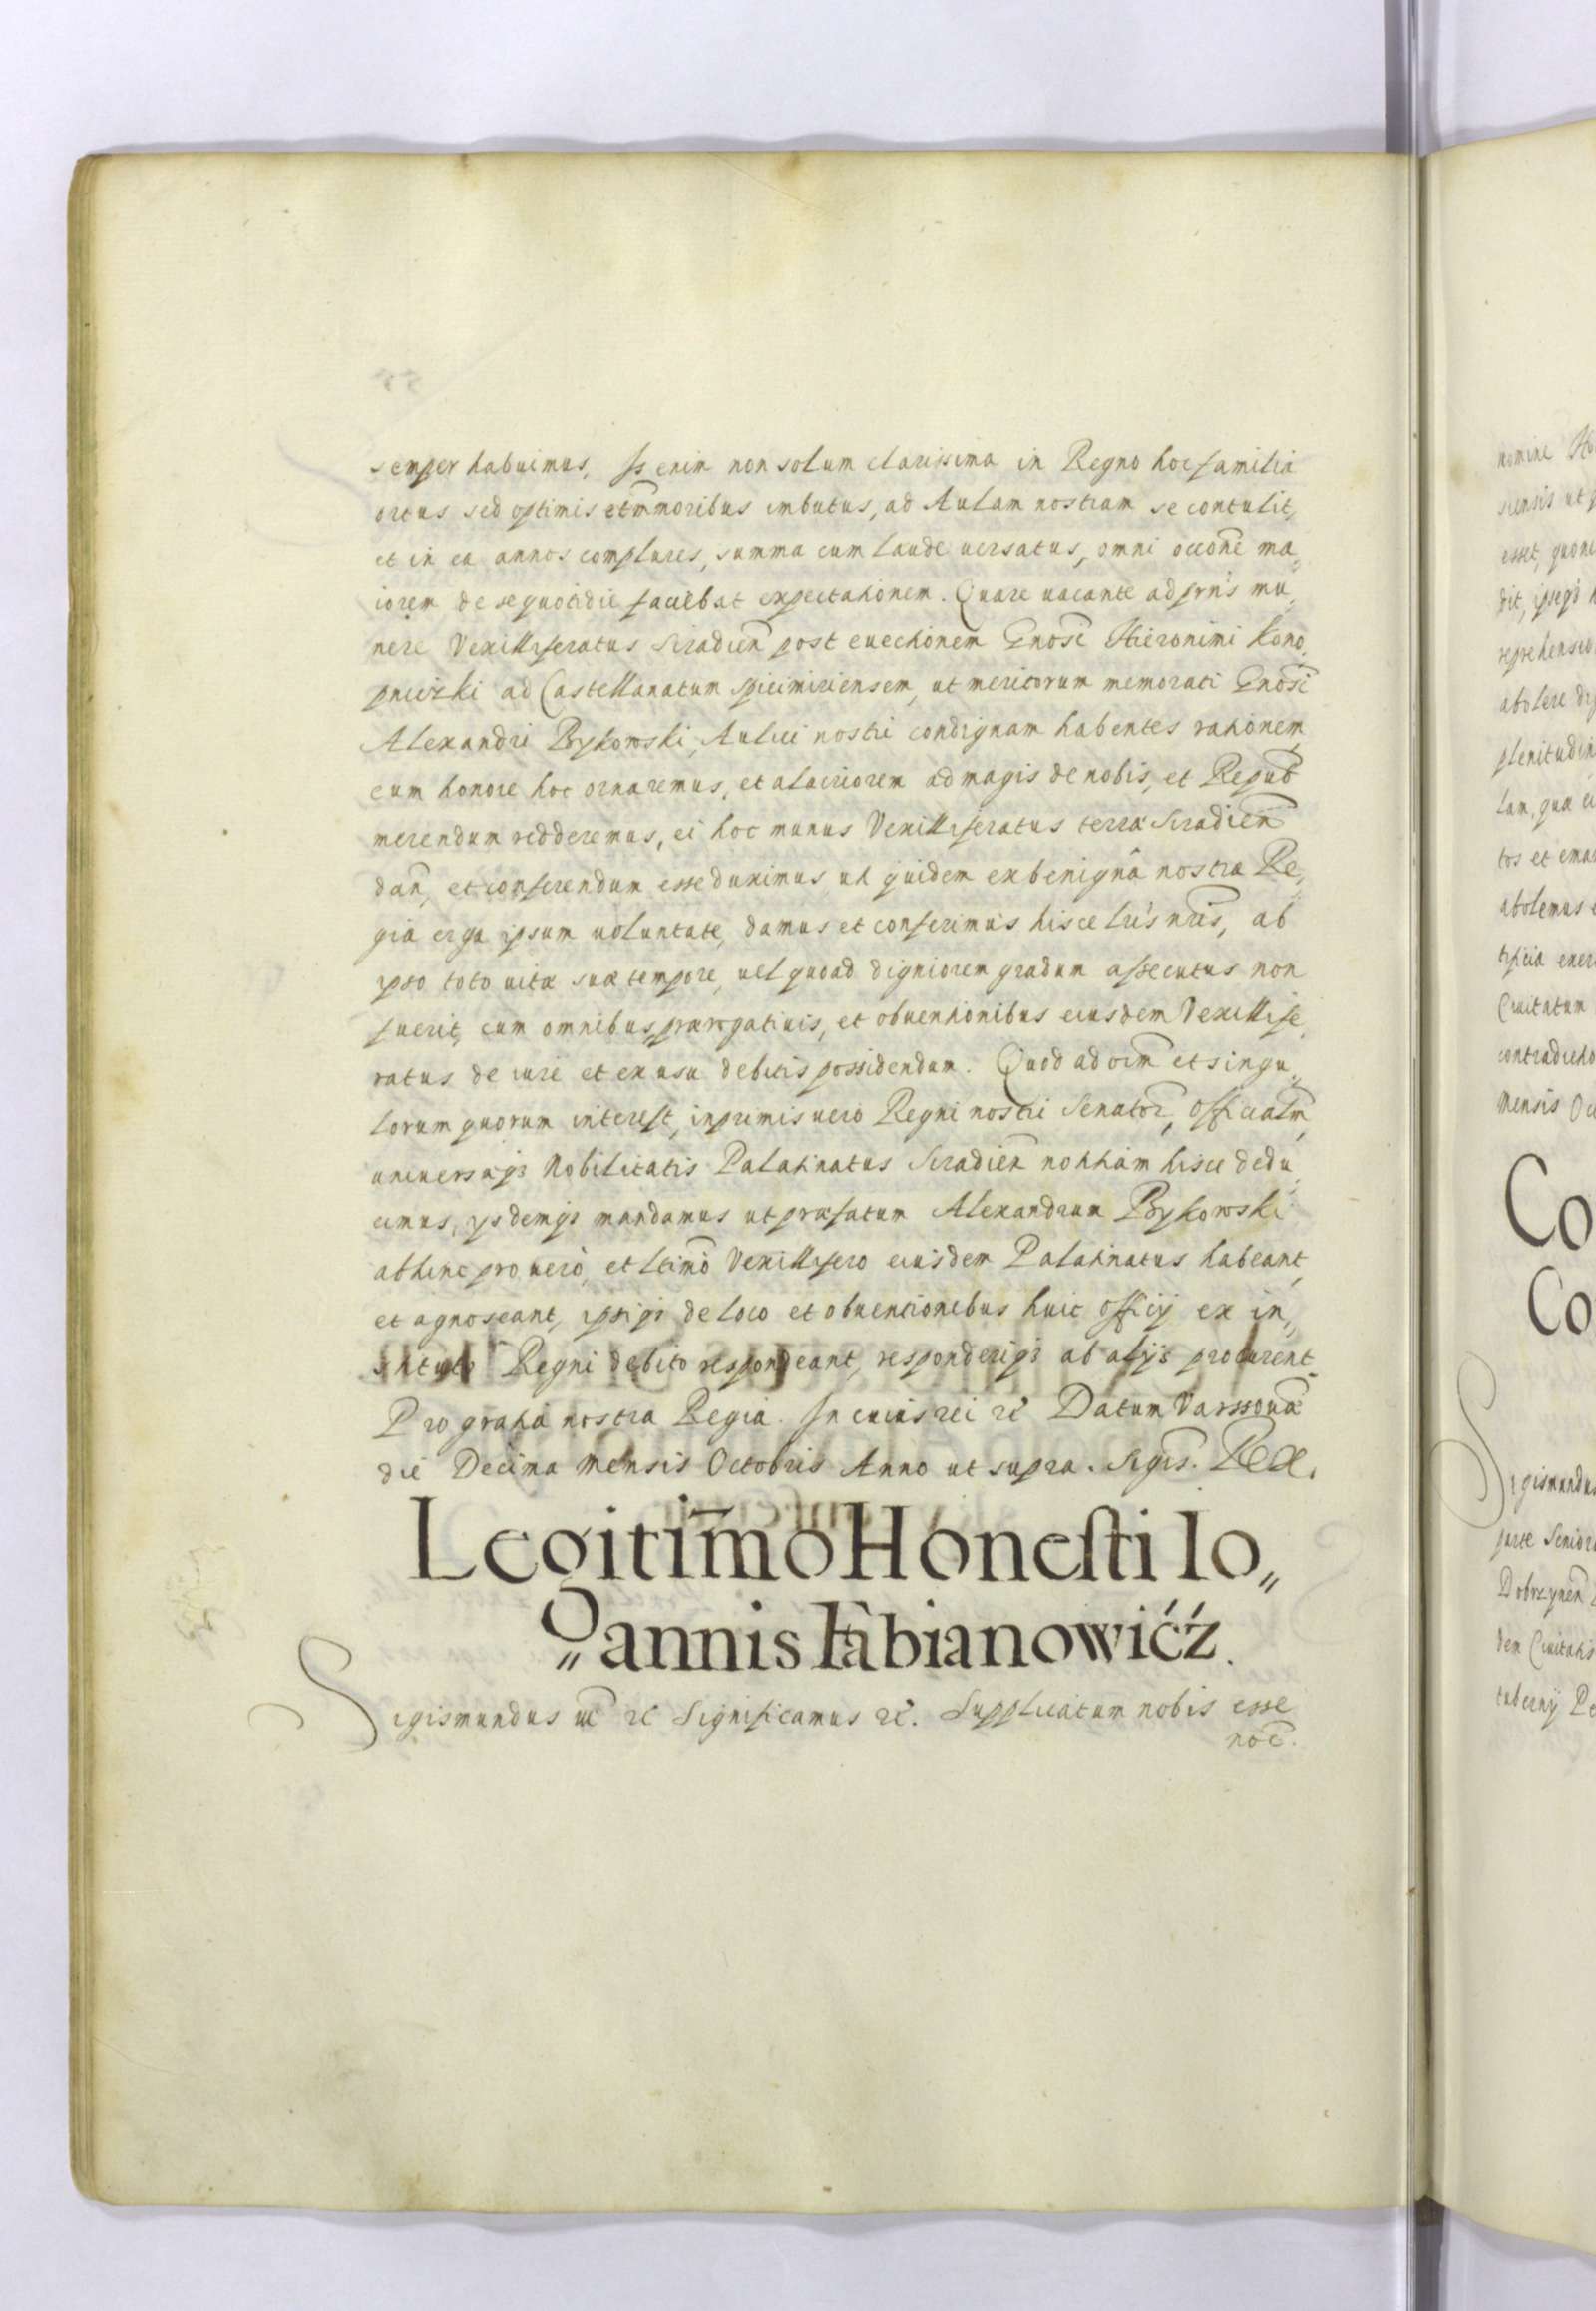 semper habuimus, Is enim non solum clarissima in Regno hoc familia
ortus sed optimis etm̃ moribus imbutus, ad Aulam nostram se contulit,
et in ea annos complures, summa cum laude uersatus, omni occoñe ma„
iorem de se quotidie faciebat expectationem. Quare uacante ad prńs mu„
nere Vexilliferatus Siradień post euectionem Gnosĩ Hieronimi Kono„
pniczki ad Castellanatum Spicimiriensem, ut meritorum memorati Gnosĩ
Alexandri Bykowski, Aulici nostri condignam habentes rationem,
eum honore hoc ornaremus, et alacriorem ad magis de nobis, et Repub̃
merendum redderemus, ei hoc munus Vexilliferatus terræ Siradień
dañ, et conferendum esse duximus, uti quidem ex benigna nostra Re„
gia erga ipsum uoluntate, damus et conferimus hisce lrís nrĩs, ab
ipso toto uitæ suæ tempore, uel quoad digniorem gradum assecutus non
fuerit, cum omnibus prærogatiuis, et obuentionibus eiusdem Vexillife„
ratus de iure et ex usu debitis possidendum. Quod ad oim̃ et singu„
lorum quorum interest, inprimis uero Regni nostri Senator̃, Officialm̃,
uniuersæqз Nobilitatis Palatinatus Siradień notitiam hisce dedu„
cimus, ysdemqз mandamus ut præfatum Alexandrum Bykowski
abhinc pro uero, et ltimõ Vexillifero eiusdem Palatinatus habeant,
et agnoscant, ipsiqз de loco et obuentionibus huic officij ex in„
stituto Regni debito respondeant, responderiqз ab alijs procurent
Pro gratia nostra Regia. In cuius rei rć Datum Varssouæ
die Decima Mensis Octobris Anno ut supra. Sigis. Rex.
Legitim̃o Honesti Io„
„annis Fabianowićź.
Sigismundus uć rć Significamus rć. Supplicatum nobis esse
noẽ.
nomine Ho
siensis ut p
esset, quoni
dit, ipseqз h
reprehensio
abolere dig
plenitudin
lam, qua ei
tos et eman
abolemus e
tificia exer
Ciuitatum
contradictio
Mensis Oc
Co
Co
Sigismundus
parte Senior
Dobrzyneñ
dem Ciuitatis
tubernij Pe